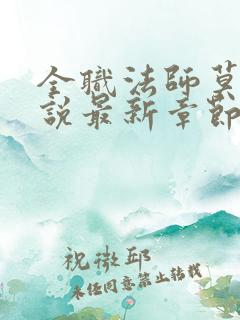 全職法師莫
說最新章節
祝微邱
未任同意禁止转载